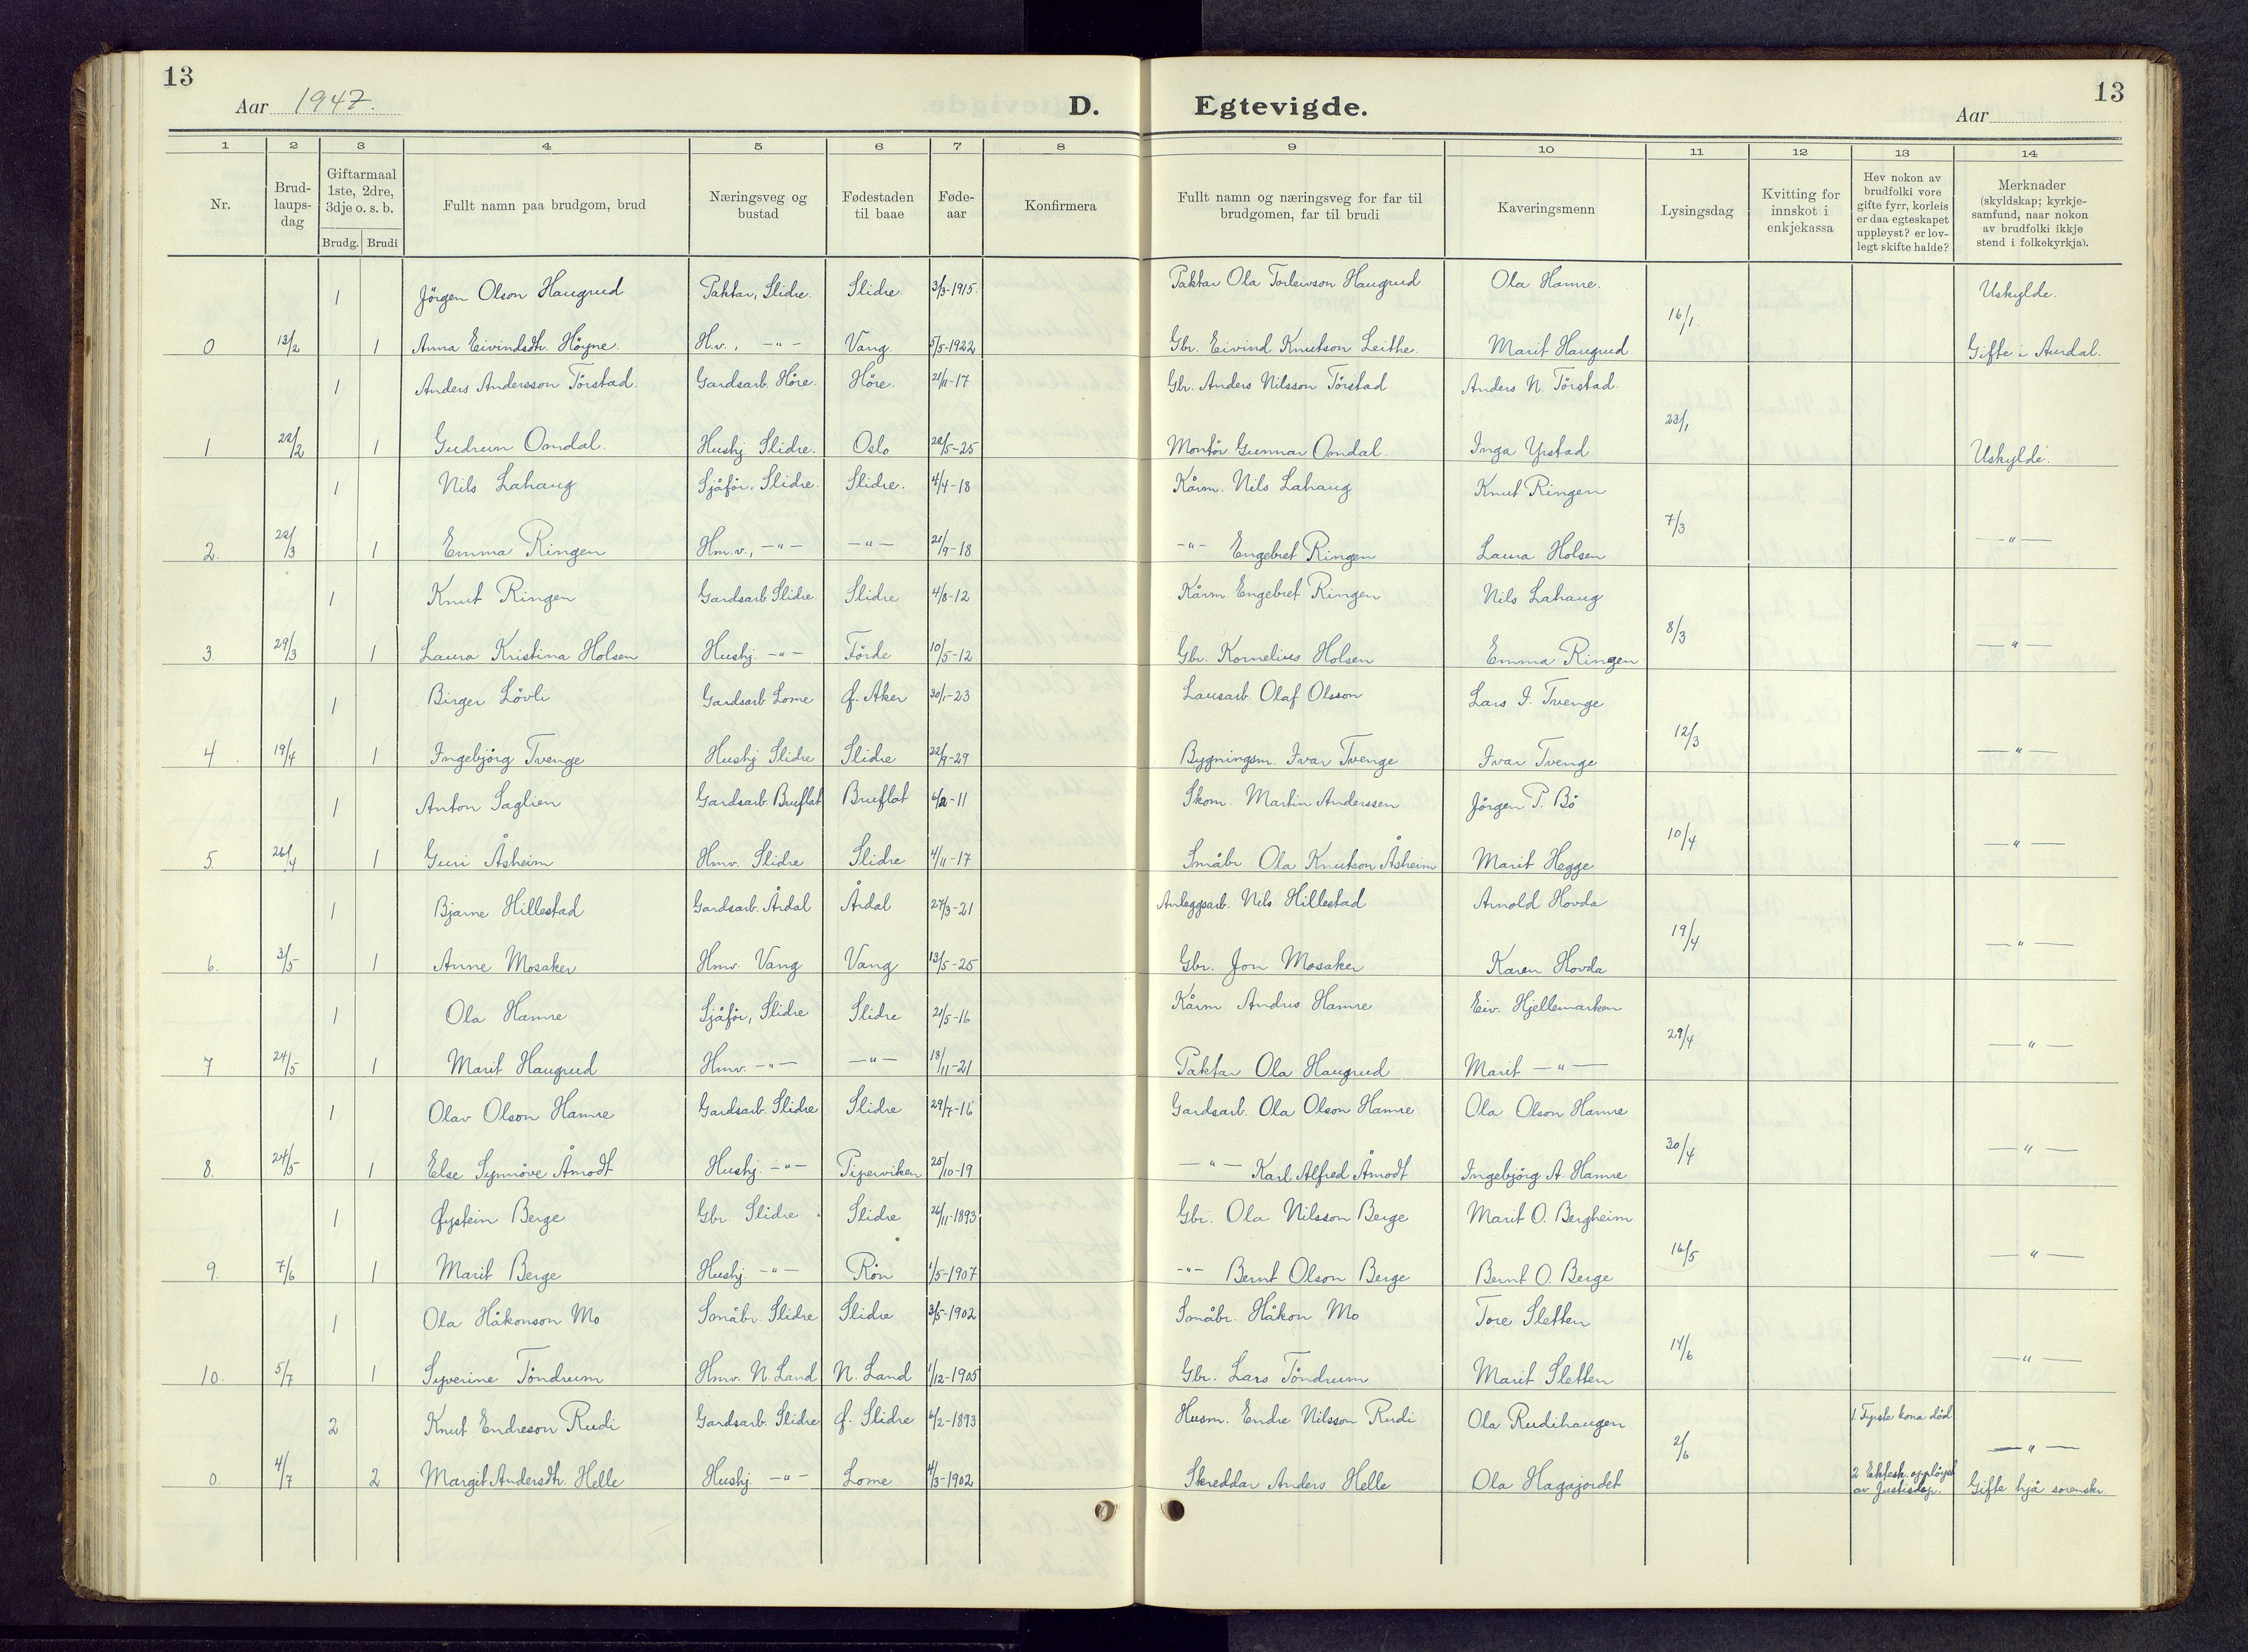 13
Aar 1947.
D.
Egtevigde.
Aar
13
1 2 3 4 5 6 7 8 9 10 11 12 13 14
Nr.
Brud-
laups-
dag
Giftarmaal
1ste, 2dre,
3dje o. s. b.
Brudg. Brudi
Fullt namn paa brudgom, brud
Næringsveg og
bustad
Fødestaden
til baae
Føde-
aar
Konfirmera
Fullt namn og næringsveg for far til
brudgomen, far til brudi
Kaveringsmenn
Lysingsdag
Kvitting for
innskot i
enkjekassa
Hev nokon av
brudfolki vore
gifte fyrr, korleis
er daa egteskapet
uppløyst? er lov-
legt skifte halde?
Merknader
(skyldskap; kyrkje-
samfund, naar nokon
av brudfolki ikkje
stend i folkekyrkja).
1 Jörgen Olson Haugrud Paktar, Slidre. Slidre. 3/3-1915. Paktar Ola Torleivson Haugrud Ola Hamre. Uskylde.
16/1.
0 13/2 1 Anna Eivindsdtr. Höyne. H.v., -"- Vang. 5/5-1922 Gbr. Eivind Knutson Leithe. Marit Haugrud Gifte i Aurdal.
1 Anders Andersson Törstad. Gardsarb. Höre. Höre. 21/11-17 Gbr. Anders Nilsson Törstad Anders N. Törstad.
23/1
1. 22/2 1 Gudrun Omdal. Hushj. Slidre. Oslo 22/5-25 Montör Gunnar Omdal. Inga Yrstad Uskylde.
1 Nils Lahaug Sjåför, Slidre. Slidre. 4/4-18 Kårm. Nils Lahaug Knut Ringen
7/3
2. 22/3 1 Emma Ringen Hm.v., -"- -"- 21/9-18 -"- Engebret Ringen Laura Holsen -"-
1 Knut Ringen Gardsarb. Slidre. Slidre 4/8-12 Kårm. Engebret Ringen Nils Lahaug
8/3
3. 29/3 1 Laura Kristina Holsen Hushj. -"- Förde 10/5-12 Gbr. Kornelius Holsen Emma Ringen -"-
1 Birger Lövli Gardsarb. Lome Ø. Aker 30/1-23 Lausarb. Olaf Olsson Lars I. Tvenge
12/3
4. 19/4 1 Ingebjörg Tvenge Hushj. Slidre Slidre 22/9-29 Bygningsm. Ivar Tvenge Ivar Tvenge -"-
1 Anton Saglien Gardsarb. Bruflat Bruflat -11 Skom. Martin Anderssen Jörgen P. Bö
10/4
5. 26/4 1 Guri Åsheim Hmv. Slidre Slidre 4/11-17 Småbr. Ola Knutson Åsheim Marit Hegge -"-
1 Bjarne Hillestad Gardsarb. Årdal Årdal 27/3-21 Anleggsarb. Nils Hillestad Arnold Hovda
19/4
6. 3/5 1 Anne Mosaker Hmv. Vang Vang 13/5-25 Gbr. Jon Mosaker Karen Hovda -"-
1 Ola Hamre Sjåför, Slidre Slidre 21/5-16 Kårm. Andris Hamre Eiv. Hjellemarken
29/4
7 24/5 1 Marit Haugrud Hmv. -"- -"- 18/11-21 Paktar Ola Haugrud Marit -"- -"-
1 Olav Olson Hamre Gardsarb. Slidre Slidre 29/7-16 Gardsarb. Ola Olson Hamre Ola Olson Hamre
30/4
8. 24/5 1 Else Synnöve Åmodt Hushj. -"- Piperviken 25/10-19 -"- Karl Alfred Åmodt Ingebjörg A. Hamre -"-
1 Øystein Berge Gbr. Slidre Slidre 26/11-1893 Gbr. Ola Nilsson Berge Marit O. Bergheim
16/5
9. 7/6 1 Marit Berge Hushj. -"- Rön 1/5-1907 -"- Bernt Olson Berge Bernt O. Berge -"-
1 Ola Håkonson Mo Småbr. Slidre Slidre 3/5-1902 Småbr. Håkon Mo Tore Sletten
14/6
10. 5/7 1 Syverine Töndrum Hmv. N. Land N. Land 1/12-1905 Gbr. Lars Töndrum Marit Sletten -"-
2 Knut Endreson Rudi Gardsarb. Slidre Ø. Slidre 6/2-1893 Husm. Endre Nilsson Rudi Ola Rudihaugen 1. Fyrste kona död
2/6 -"-
0. 4/7 2 Margit Andersdtr. Helle Hushj. -"- Lome 4/3-1902 Skreddar Anders Helle Ola Hagajordet 2 Ektesk. opplöyst
av Justisdep. Gifte hjå sorenskr.